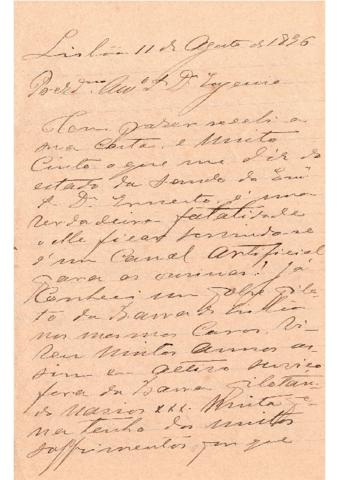 Lisbôa 11 de Agosto de 1896
Am.º Dr. Eugenio
Com prazer recebi a
sua carta, e muito
Sinto o que me diz do
estado da saude do
Dr. Ernesto, é uma
verdadeira fatalidade
elle ficar
é um Canal Artificial
para as ourinas! Já
Conheci um pilo
to da Barra de
nos mesmos Casos. Vi
veu muitos annos as
sim em activo serviço
fora da Barra pilotan
do Navios xxx. Muita pe
na tenho dos muitos
soffrimentos, por que